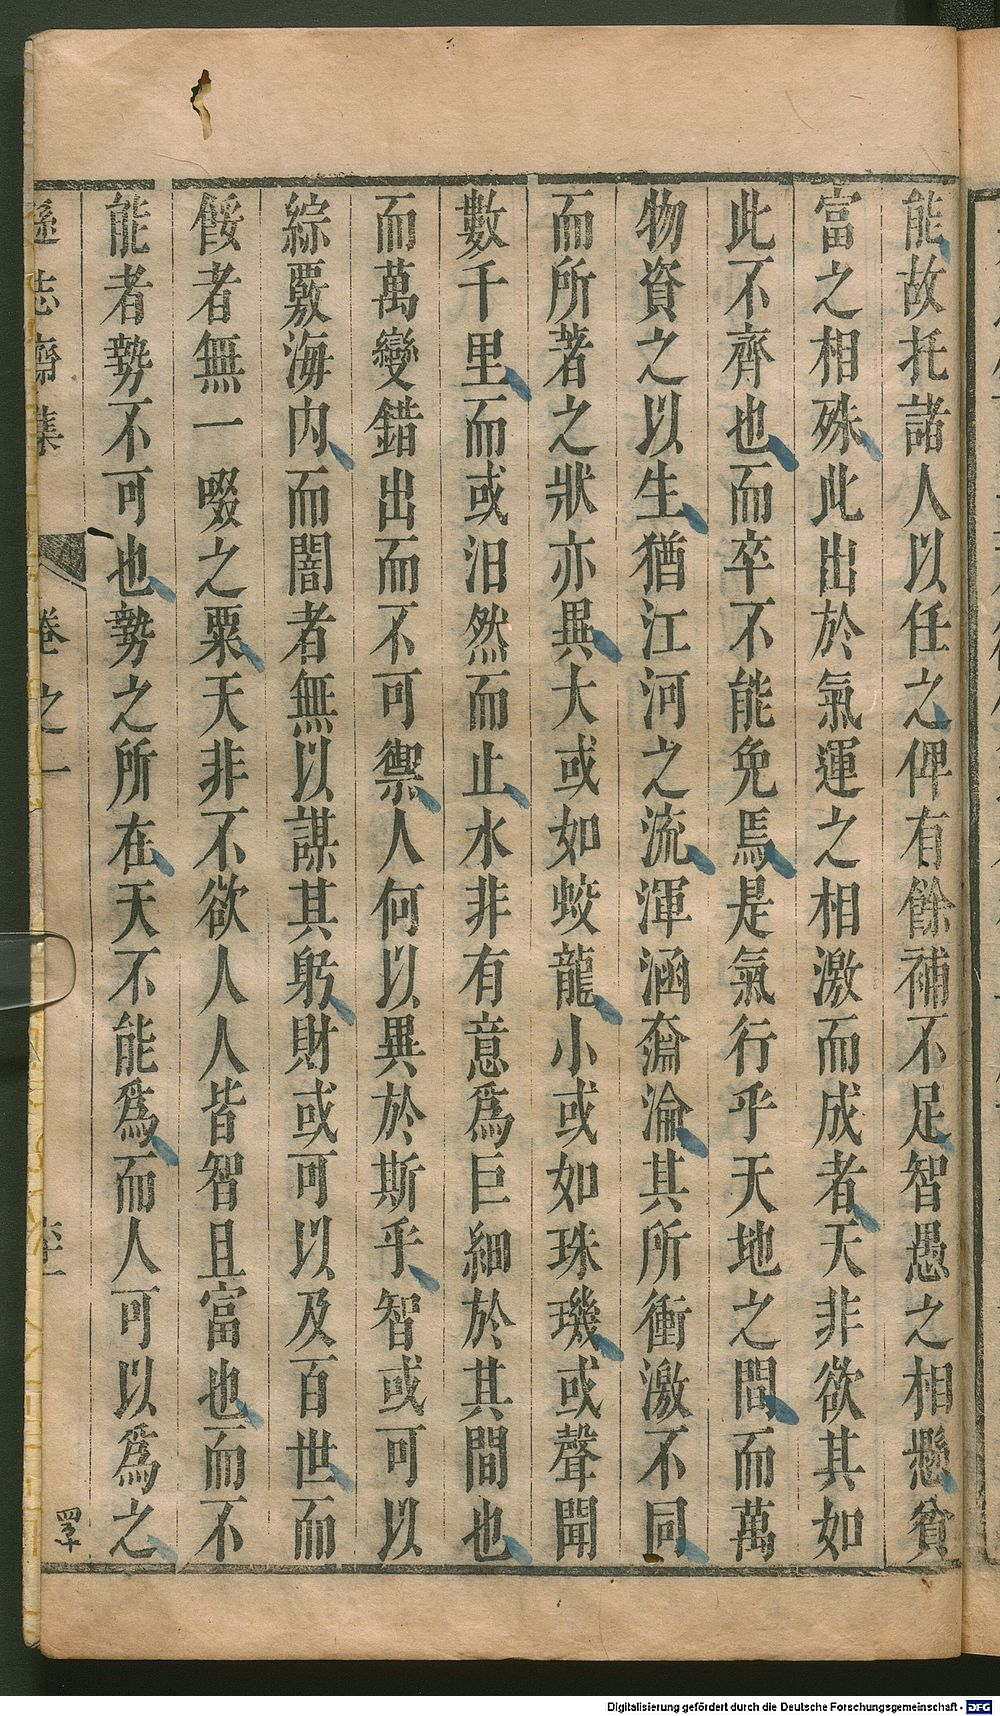 能故托諸人以任之俾有餘補不足智愚之相懸貧
富之相殊此出於氣運之相激而成者天非欲其如
此不齊也而卒不能免焉是氣行乎天地之間而萬
物資之以生猶江河之流渾涵奫淪其所衝激不同
而所著之狀亦異大或如蛟龍小或如珠璣或聲聞
數千里而或汨然而止水非有意爲巨細於其間也
而萬變錯出而不可禦人何以異於斯乎智或可以
綜覈海内而闇者無以謀其躬財或可以及百世而
餒者無一啜之粟天非不欲人人皆智且富也而不
能者勢不可也勢之所在天不能爲而人可以爲之
遜志齋集 卷之一
Digitalisierung gefördert durch die Deutsche Forschungsgemeinschaft - DFG